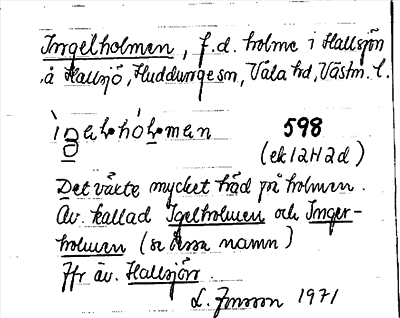 Ingelholmen, f.d. holme i Hallsjön
å Hallsjö, Huddunge sn, Våla hd, Västm. l.
598
(ek 12H2d)
Det växte mycket träd på holmen.
Äv. kallad Igelholmen och Inger-
holmen (se dessa namn)
Jfr äv. Hallsjön.
L. Jonsson 1971